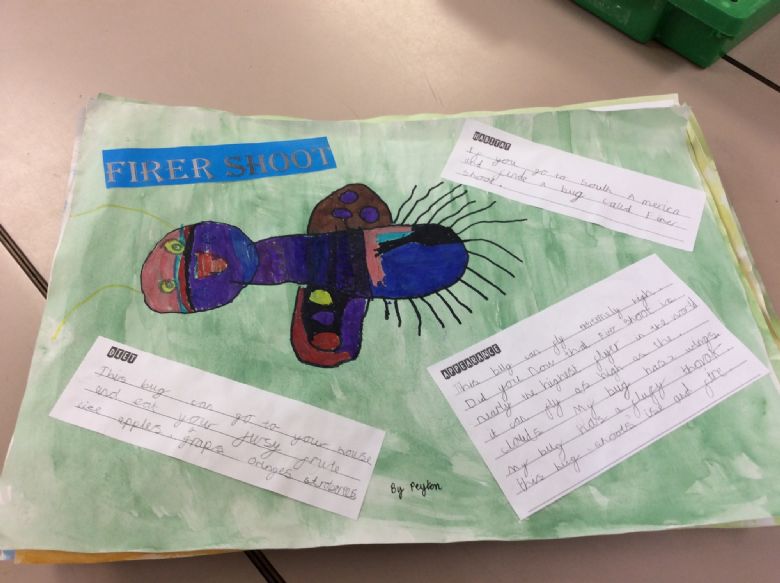 FIRER SHOOT
HABITAT
If you go to South America
and finde a bug called Firer
shoot.
DIET
This bug can go to your house
and eat your juisy frute
like apples, graps oringes stroberies
APPEARANCE
This bug can fly normaly high.
Did you now that firer shoot is
nearly the highest flyer in the world
it can fly as high as the
clouds. My bug has wings.
My bug has a flufy
this bug shoots ise and fire
By Peyton